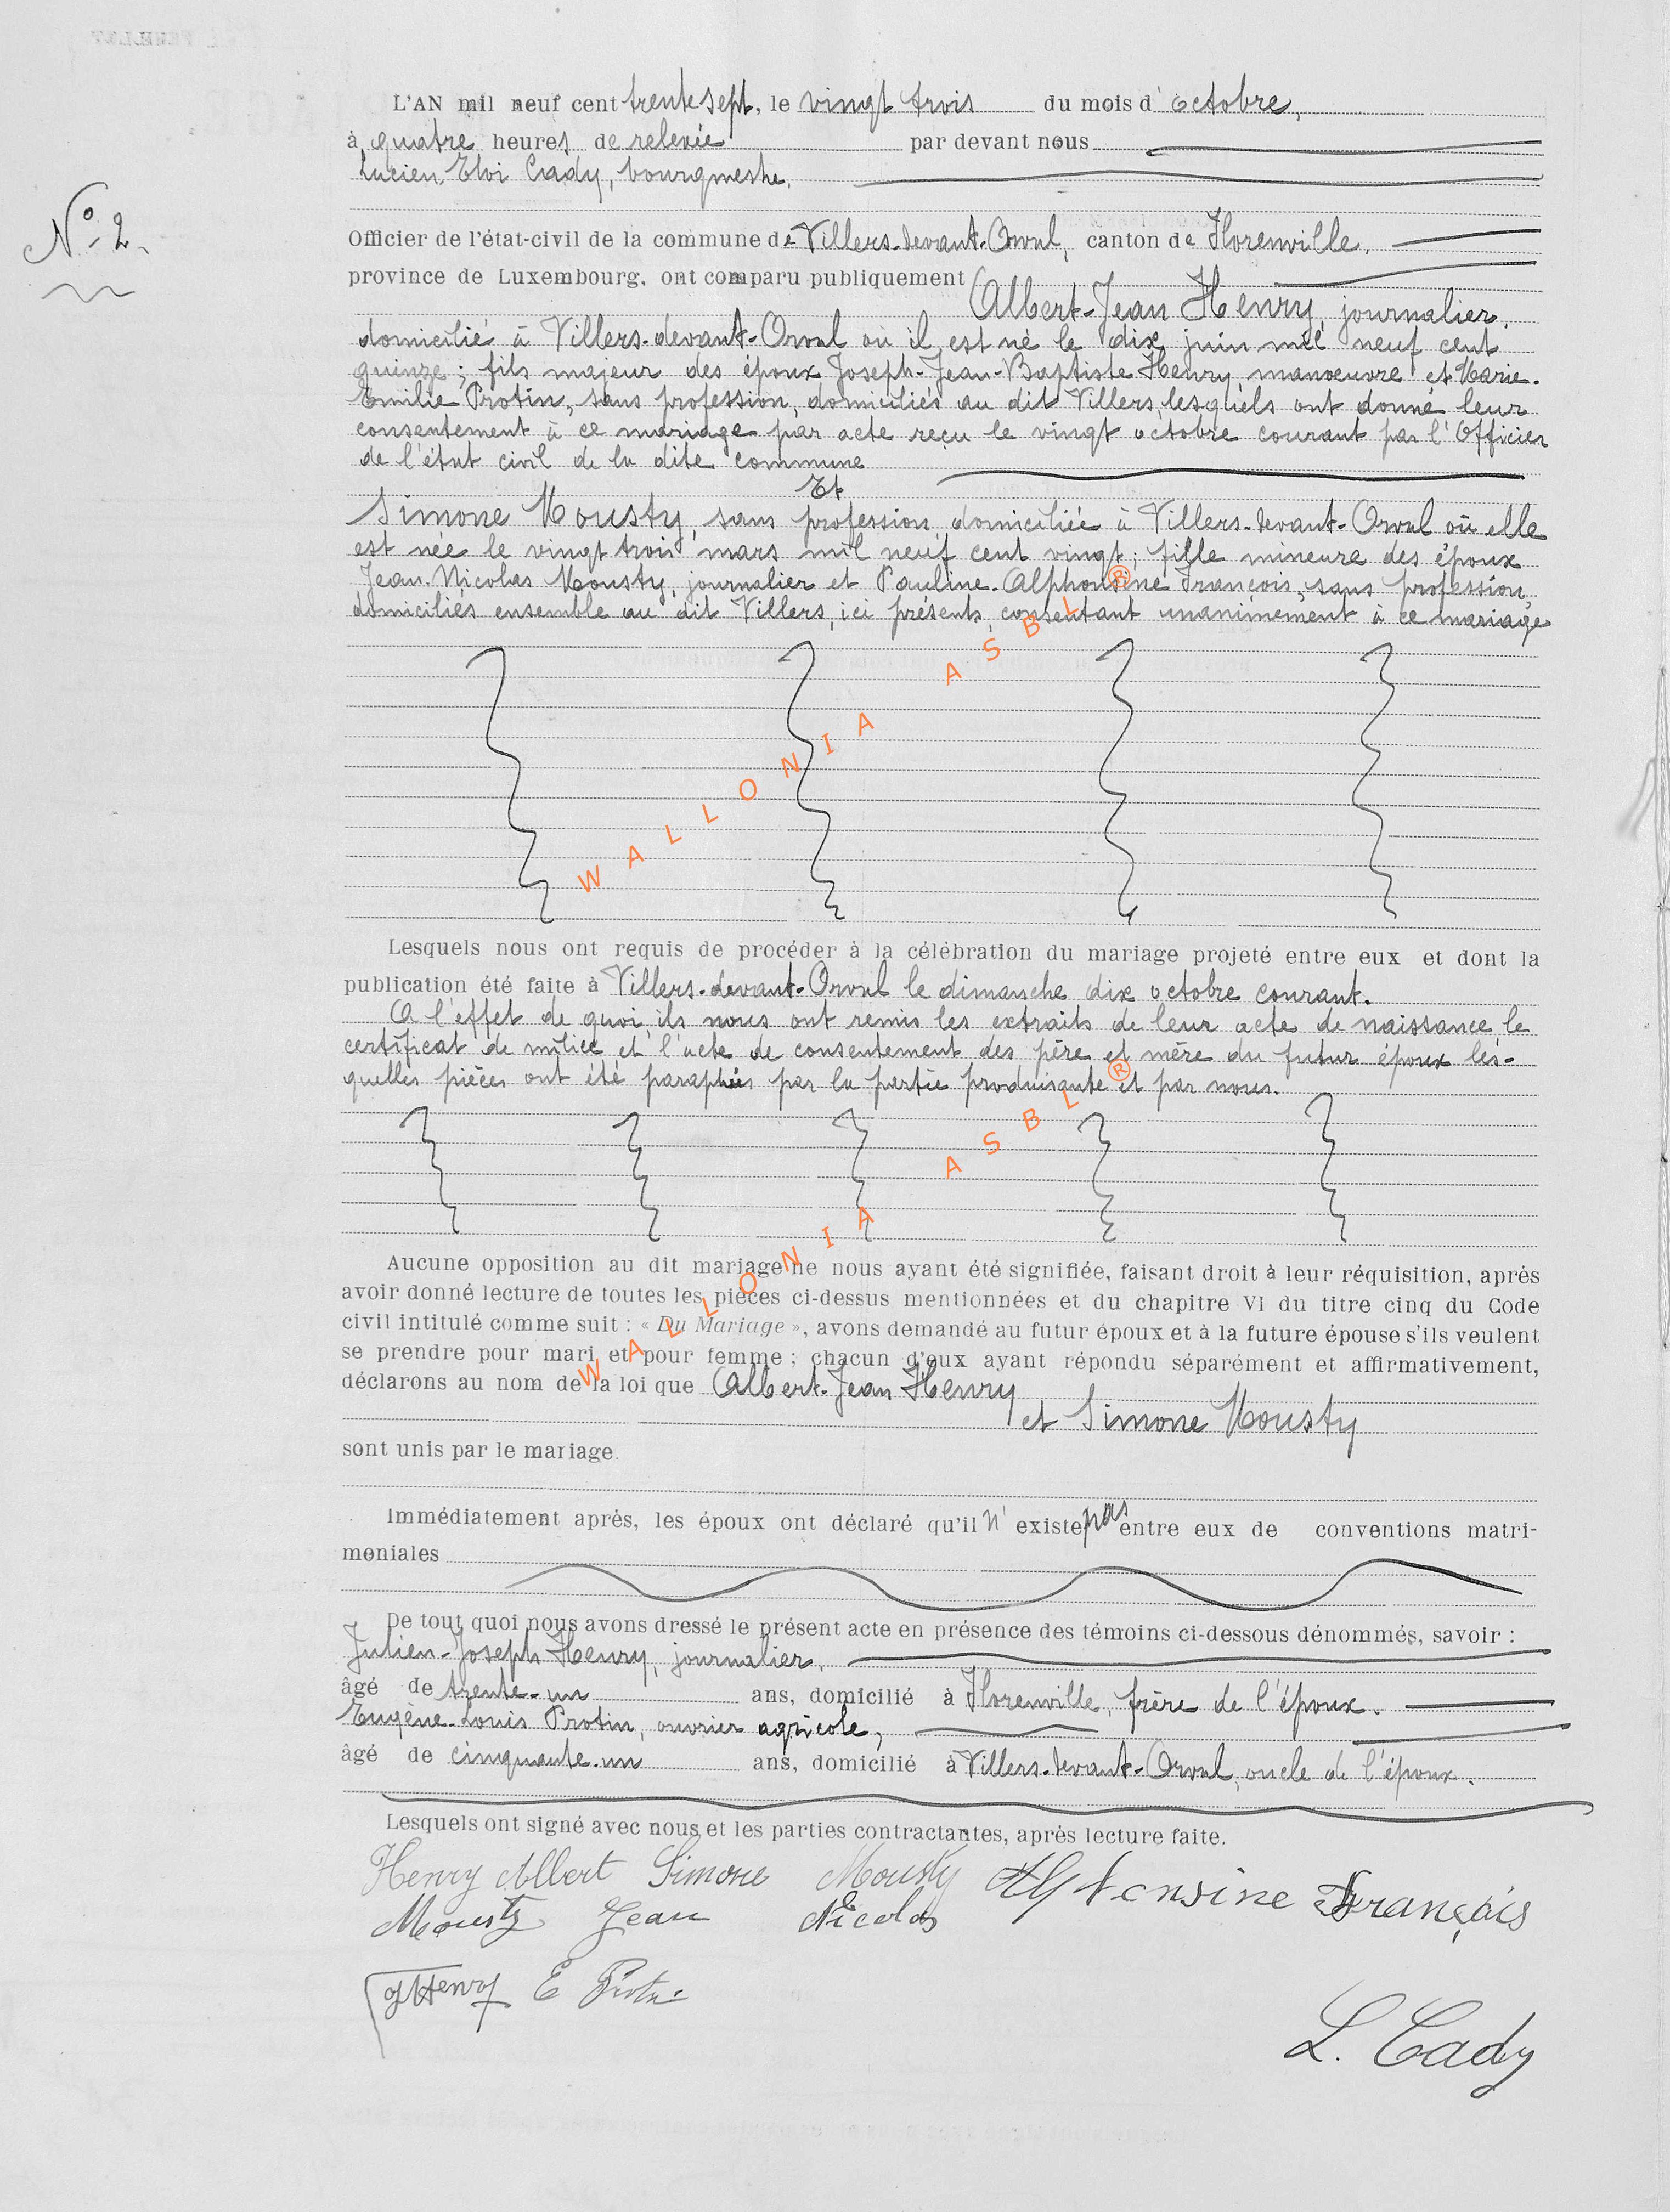 L'AN mil neuf cent trente sept, le vingt trois du mois d'octobre,
à quatre heures de relevée par devant nous
Lucien Eloi Cady, bourgmestre.
N° 2.
Officier de l'état-civil de la commune de Villers-devant-Orval, canton de Florenville,
province de Luxembourg, ont comparu publiquement
Albert-Jean Henry, journalier,
domicilié à Villers-devant-Orval où il est né le dix juin mil neuf cent
quinze; fils majeur des époux Joseph-Jean-Baptiste Henry, manoeuvre et Marie-
Emilie Protin, sans profession, domiciliés au dit Villers, lesquels ont donné leur
consentement à ce mariage par acte reçu le vingt octobre courant par l'Officier
de l'état civil de la dite commune
Et
Simone Mousty, sans profession, domiciliée à Villers-devant-Orval où elle
est née le vingt trois mars mil neuf cent vingt; fille mineure des époux
Jean-Nicolas Mousty, journalier et Pauline-Alphonsine François, sans profession,
domiciliés ensemble au dit Villers, ici présents, consentant unanimement à ce mariage
WALLONIA ASBL ®
Lesquels nous ont requis de procéder à la célébration du mariage projeté entre eux et dont la
publication été faite à Villers-devant-Orval le dimanche dix octobre courant.
A l'effet de quoi, ils nous ont remis les extraits de leur acte de naissance, le
certificat de milice et l'acte de consentement des père et mère du futur époux les-
quelles pièces ont été paraphées par la partie produisante et par nous.
WALLONIA ASBL ®
Aucune opposition au dit mariage ne nous ayant été signifiée, faisant droit à leur réquisition, après
avoir donné lecture de toutes les pièces ci-dessus mentionnées et du chapitre VI du titre cinq du Code
civil intitulé comme suit : « Du Mariage », avons demandé au futur époux et à la future épouse s'ils veulent
se prendre pour mari et pour femme ; chacun d'eux ayant répondu séparément et affirmativement,
déclarons au nom de la loi que Albert-Jean Henry
et Simone Mousty
sont unis par le mariage.
Immédiatement après, les époux ont déclaré qu'il n'existe pas entre eux de conventions matri-
moniales
De tout quoi nous avons dressé le présent acte en présence des témoins ci-dessous dénommés, savoir :
Julien-Joseph Henry, journalier,
âgé de trente-un ans, domicilié à Florenville, frère de l'époux.
Eugène-Louis Protin, ouvrier agricole,
âgé de cinquante-un ans, domicilié à Villers-devant-Orval, oncle de l'époux.
Lesquels ont signé avec nous et les parties contractantes, après lecture faite.
Henry Albert Simone Mousty Alphonsine François
Mousty Jean Nicolas
J Henry E Protin
L. Cady